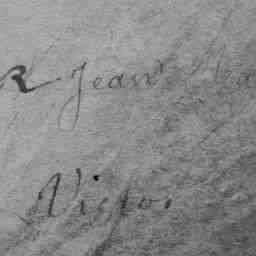 R Jean
Victo.